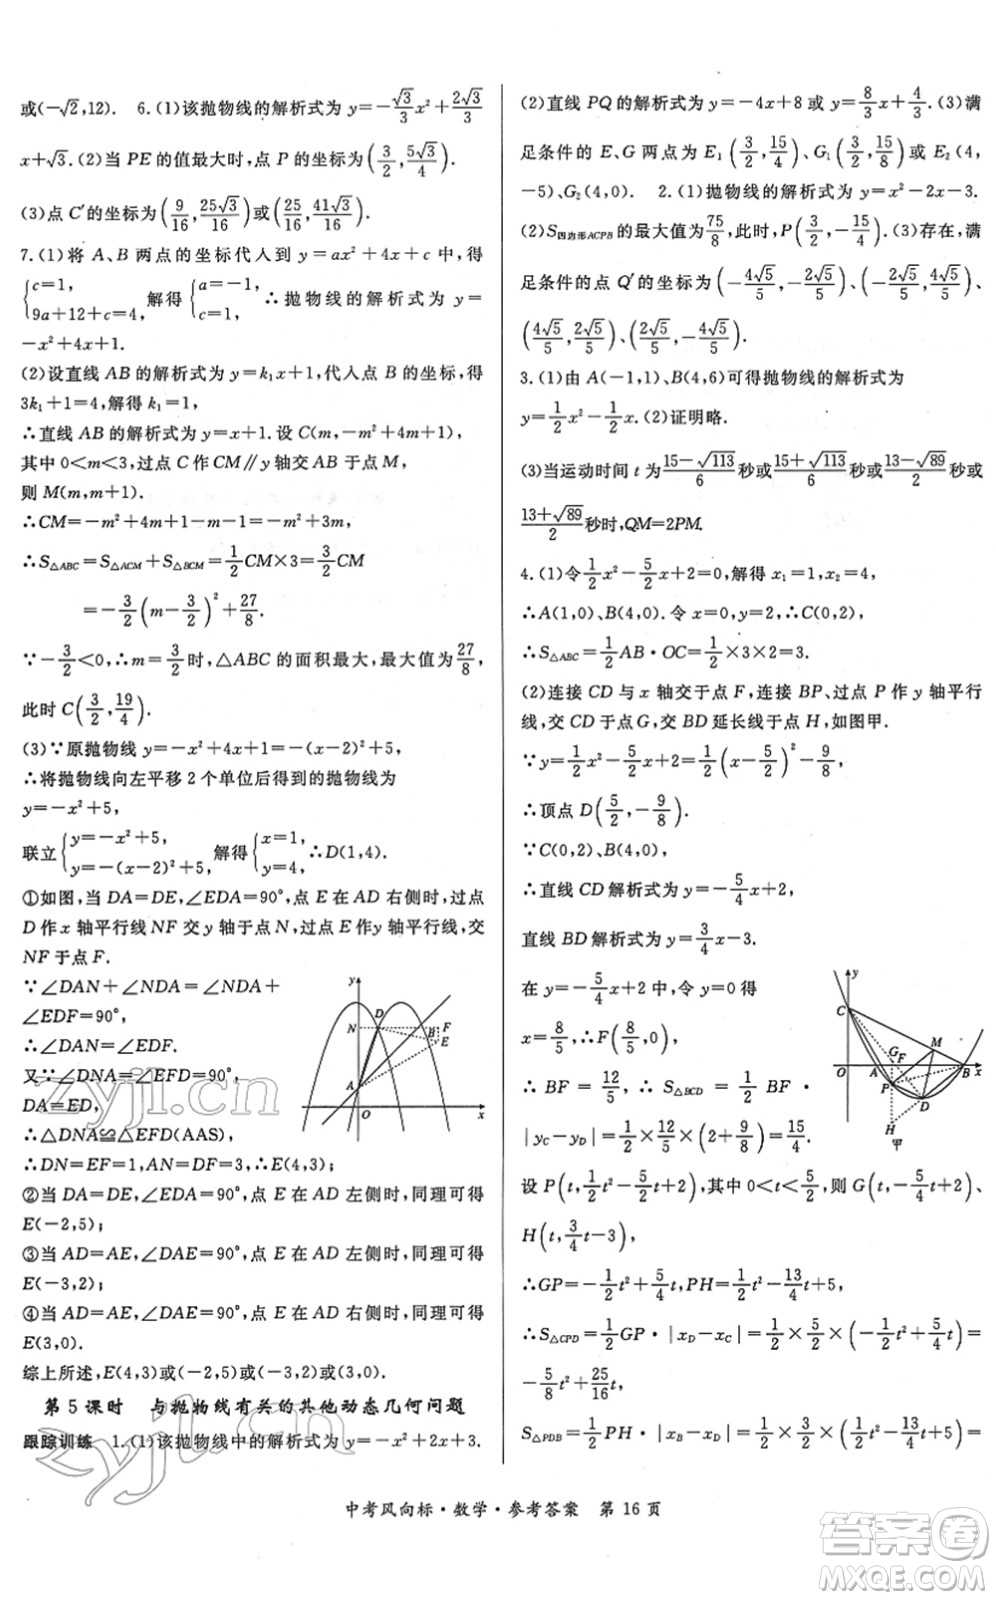 或(−√2,12).　6.(1)该抛物线的解析式为 y=−√3/3x²+2√3/3
x+√3.(2)当 PE 的值最大时,点 P 的坐标为(3/2,5√3/4).
(3)点 C′的坐标为(9/16,25√3/16)或(25/16,41√3/16).
7.(1)将 A、B 两点的坐标代入到 y=ax²+4x+c 中,得
{c=1, 9a+12+c=4, 解得{a=−1, c=1. ∴抛物线的解析式为 y=
−x²+4x+1.
(2)设直线 AB 的解析式为 y=k₁x+1,代入点 B 的坐标,得
3k₁+1=4,解得 k₁=1,
∴直线 AB 的解析式为 y=x+1.设 C(m,−m²+4m+1),
其中 0<m<3,过点 C 作 CM∥y 轴交 AB 于点 M,
则 M(m,m+1).
∴CM=−m²+4m+1−m−1=−m²+3m,
∴S△ABC=S△ACM+S△BCM=1/2CM×3=3/2CM
=−3/2(m−3/2)²+27/8.
∵−3/2<0,∴m=3/2时,△ABC 的面积最大,最大值为27/8,
此时 C(3/2,19/4).
(3)∵原抛物线 y=−x²+4x+1=−(x−2)²+5,
∴将抛物线向左平移 2 个单位后得到的抛物线为
y=−x²+5,
联立{y=−x²+5, y=−(x−2)²+5, 解得{x=1, y=4, ∴D(1,4).
①如图,当 DA=DE,∠EDA=90°,点 E 在 AD 右侧时,过点
D 作 x 轴平行线 NF 交 y 轴于点 N,过点 E 作 y 轴平行线,交
NF 于点 F.
∵∠DAN+∠NDA=∠NDA+
∠EDF=90°,
∴∠DAN=∠EDF.
又∵∠DNA=∠EFD=90°,
DA=ED,
∴△DNA≌△EFD(AAS).
∴DN=EF=1,AN=DF=3,∴E(4,3);
②当 DA=DE,∠EDA=90°,点 E 在 AD 左侧时,同理可得
E(−2,5);
③当 AD=AE,∠DAE=90°,点 E 在 AD 左侧时,同理可得
E(−3,2);
④当 AD=AE,∠DAE=90°,点 E 在 AD 右侧时,同理可得
E(3,0).
综上所述,E(4,3)或(−2,5)或(−3,2)或(3,0).
第 5 课时　与抛物线有关的其他动态几何问题
跟踪训练　1.(1)该抛物线中的解析式为 y=−x²+2x+3.
y N D B F E A O x
(2)直线 PQ 的解析式为 y=−4x+8 或 y=8/3x+4/3.(3)满
足条件的 E、G 两点为 E₁(3/2,15/4)、G₁(3/2,15/8)或 E₂(4,
−5)、G₂(4,0).　2.(1)抛物线的解析式为 y=x²−2x−3.
(2)S四边形ACPB的最大值为75/8,此时,P(3/2,−15/4).(3)存在,满
足条件的点 Q′的坐标为(−4√5/5,−2√5/5)、(−2√5/5,4√5/5)、
(4√5/5,2√5/5)、(2√5/5,−4√5/5).
3.(1)由 A(−1,1)、B(4,6)可得抛物线的解析式为
y=1/2x²−1/2x.(2)证明略.
(3)当运动时间 t 为15−√113/6秒或15+√113/6秒或13−√89/2秒或
13+√89/2秒时,QM=2PM.
4.(1)令1/2x²−5/2x+2=0,解得 x₁=1,x₂=4,
∴A(1,0)、B(4,0).令 x=0,y=2,∴C(0,2),
∴S△ABC=1/2AB·OC=1/2×3×2=3.
(2)连接 CD 与 x 轴交于点 F,连接 BP、过点 P 作 y 轴平行
线,交 CD 于点 G,交 BD 延长线于点 H,如图甲.
∵y=1/2x²−5/2x+2=1/2(x−5/2)²−9/8,
∴顶点 D(5/2,−9/8).
∵C(0,2)、B(4,0),
∴直线 CD 解析式为 y=−5/4x+2,
直线 BD 解析式为 y=3/4x−3.
在 y=−5/4x+2 中,令 y=0 得
x=8/5,∴F(8/5,0),
∴ BF = 12/5, S△BCD = 1/2 BF ·
|yC−yD|=1/2×12/5×(2+9/8)=15/4.
设 P(t,1/2t²−5/2t+2),其中 0<t<5/2,则 G(t,−5/4t+2),
H(t,3/4t−3),
∴GP=−1/2t²+5/4t,PH=1/2t²−13/4t+5,
∴S△CPD=1/2GP·|xD−xC|=1/2×5/2×(−1/2t²+5/4t)=
−5/8t²+25/16t,
S△PDB=1/2PH·|xB−xD|=1/2×3/2×(1/2t²−13/4t+5)=
y C G F M O A B x P D H 甲
中考风向标·数学·参考答案　第 16 页
zyjl.cn
zyjl.cn
答案圈
MXQE.COM